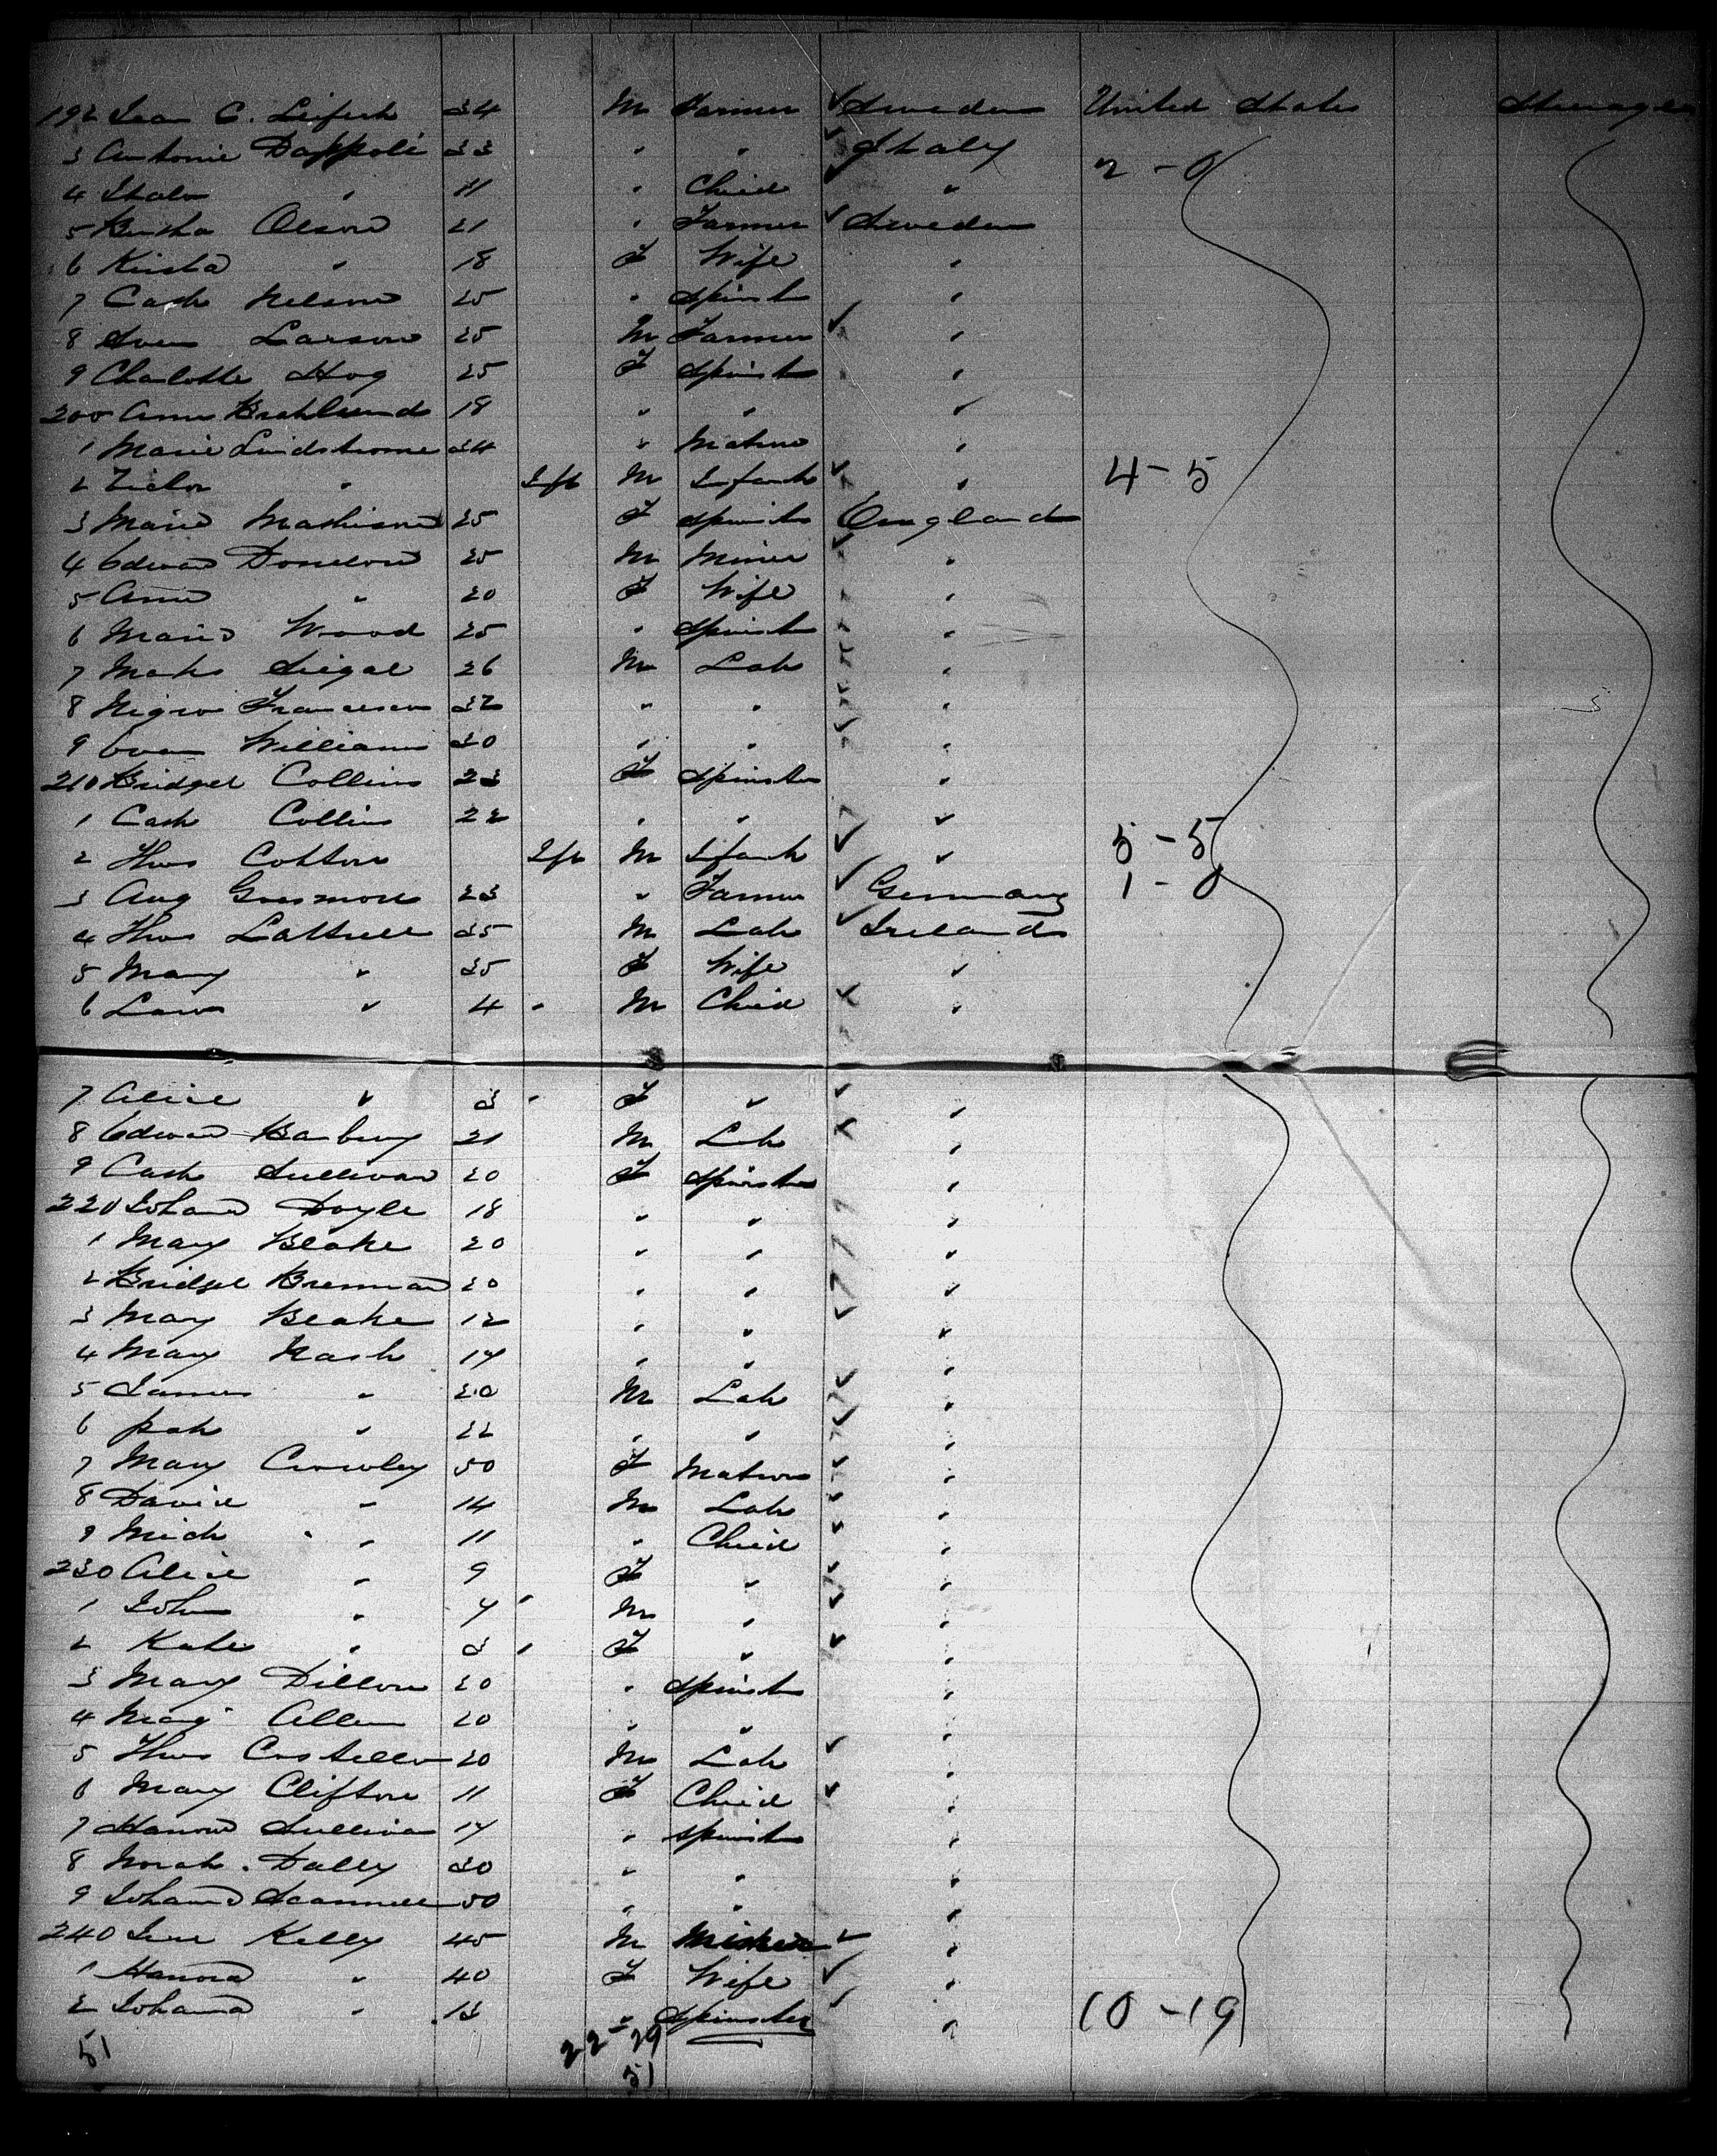 192 C. 34 M Farmer Sweden United States Steerage
3 Antonie Dappoli 33 " " Italy 2-0
4 Italo " 11 " Child "
5 Olson 21 " Farmer Sweden
6 " 18 F Wife "
7 Cath Nelson 25 " Spinst "
8 Sven Larson 25 M Farmer "
9 Charlotte Hog 25 F Spinst "
200 Anna 18 " " "
1 Marie Lindstrome 34 " Matron "
2 Victor " Inft M Infant " 4-5
3 Marie Mathison 25 F Spinst England
4 Edward 25 M Miner "
5 Anne " 20 F Wife "
6 Marie Wood 25 " Spinst "
7 Siegal 26 M Lab "
8 Nigro Francesco 32 " " "
9 Evan Williams 30 " " "
210 Bridget Collins 23 F Spinster "
1 Cath Collins 22 " " "
2 Thos Cotton Inft M Infant " 5-5
3 Aug 23 " Farmer Germany 1-0
4 Thos Lattrell 35 M Lab Ireland
5 Mary " 35 F Wife "
6 " 4 M Child "
7 Alice " 3 F " "
8 Edward 21 M Lab "
9 Cath Sullivan 20 F Spinster "
220 Johana Doyle 18 " " "
1 Mary Blake 20 " " "
2 Bridget Brennan 20 " " "
3 Mary Blake 12 " " "
4 Mary Nash 17 " " "
5 James " 20 M Lab "
6 Pat " 22 " " "
7 Mary Crowley 50 F Matron "
8 David " 14 M Lab "
9 Mich " 11 " Child "
230 Alice " 9 F " "
1 John " 7 M " "
2 Kate " 3 F " "
3 Mary Dillon 20 " Spinst "
4 Mary Allen 20 " " "
5 Thos Costello 20 M Lab "
6 Mary Clifton 11 F Child "
7 Hanora Sullivan 17 " Spinst "
8 Norah Dally 30 " " "
9 Johana Scannell 50 " " "
240 Kelly 45 M Miner "
1 Hanora " 40 F Wife "
2 Johana " 13 " Spinster " 10-19
51 22-29
51